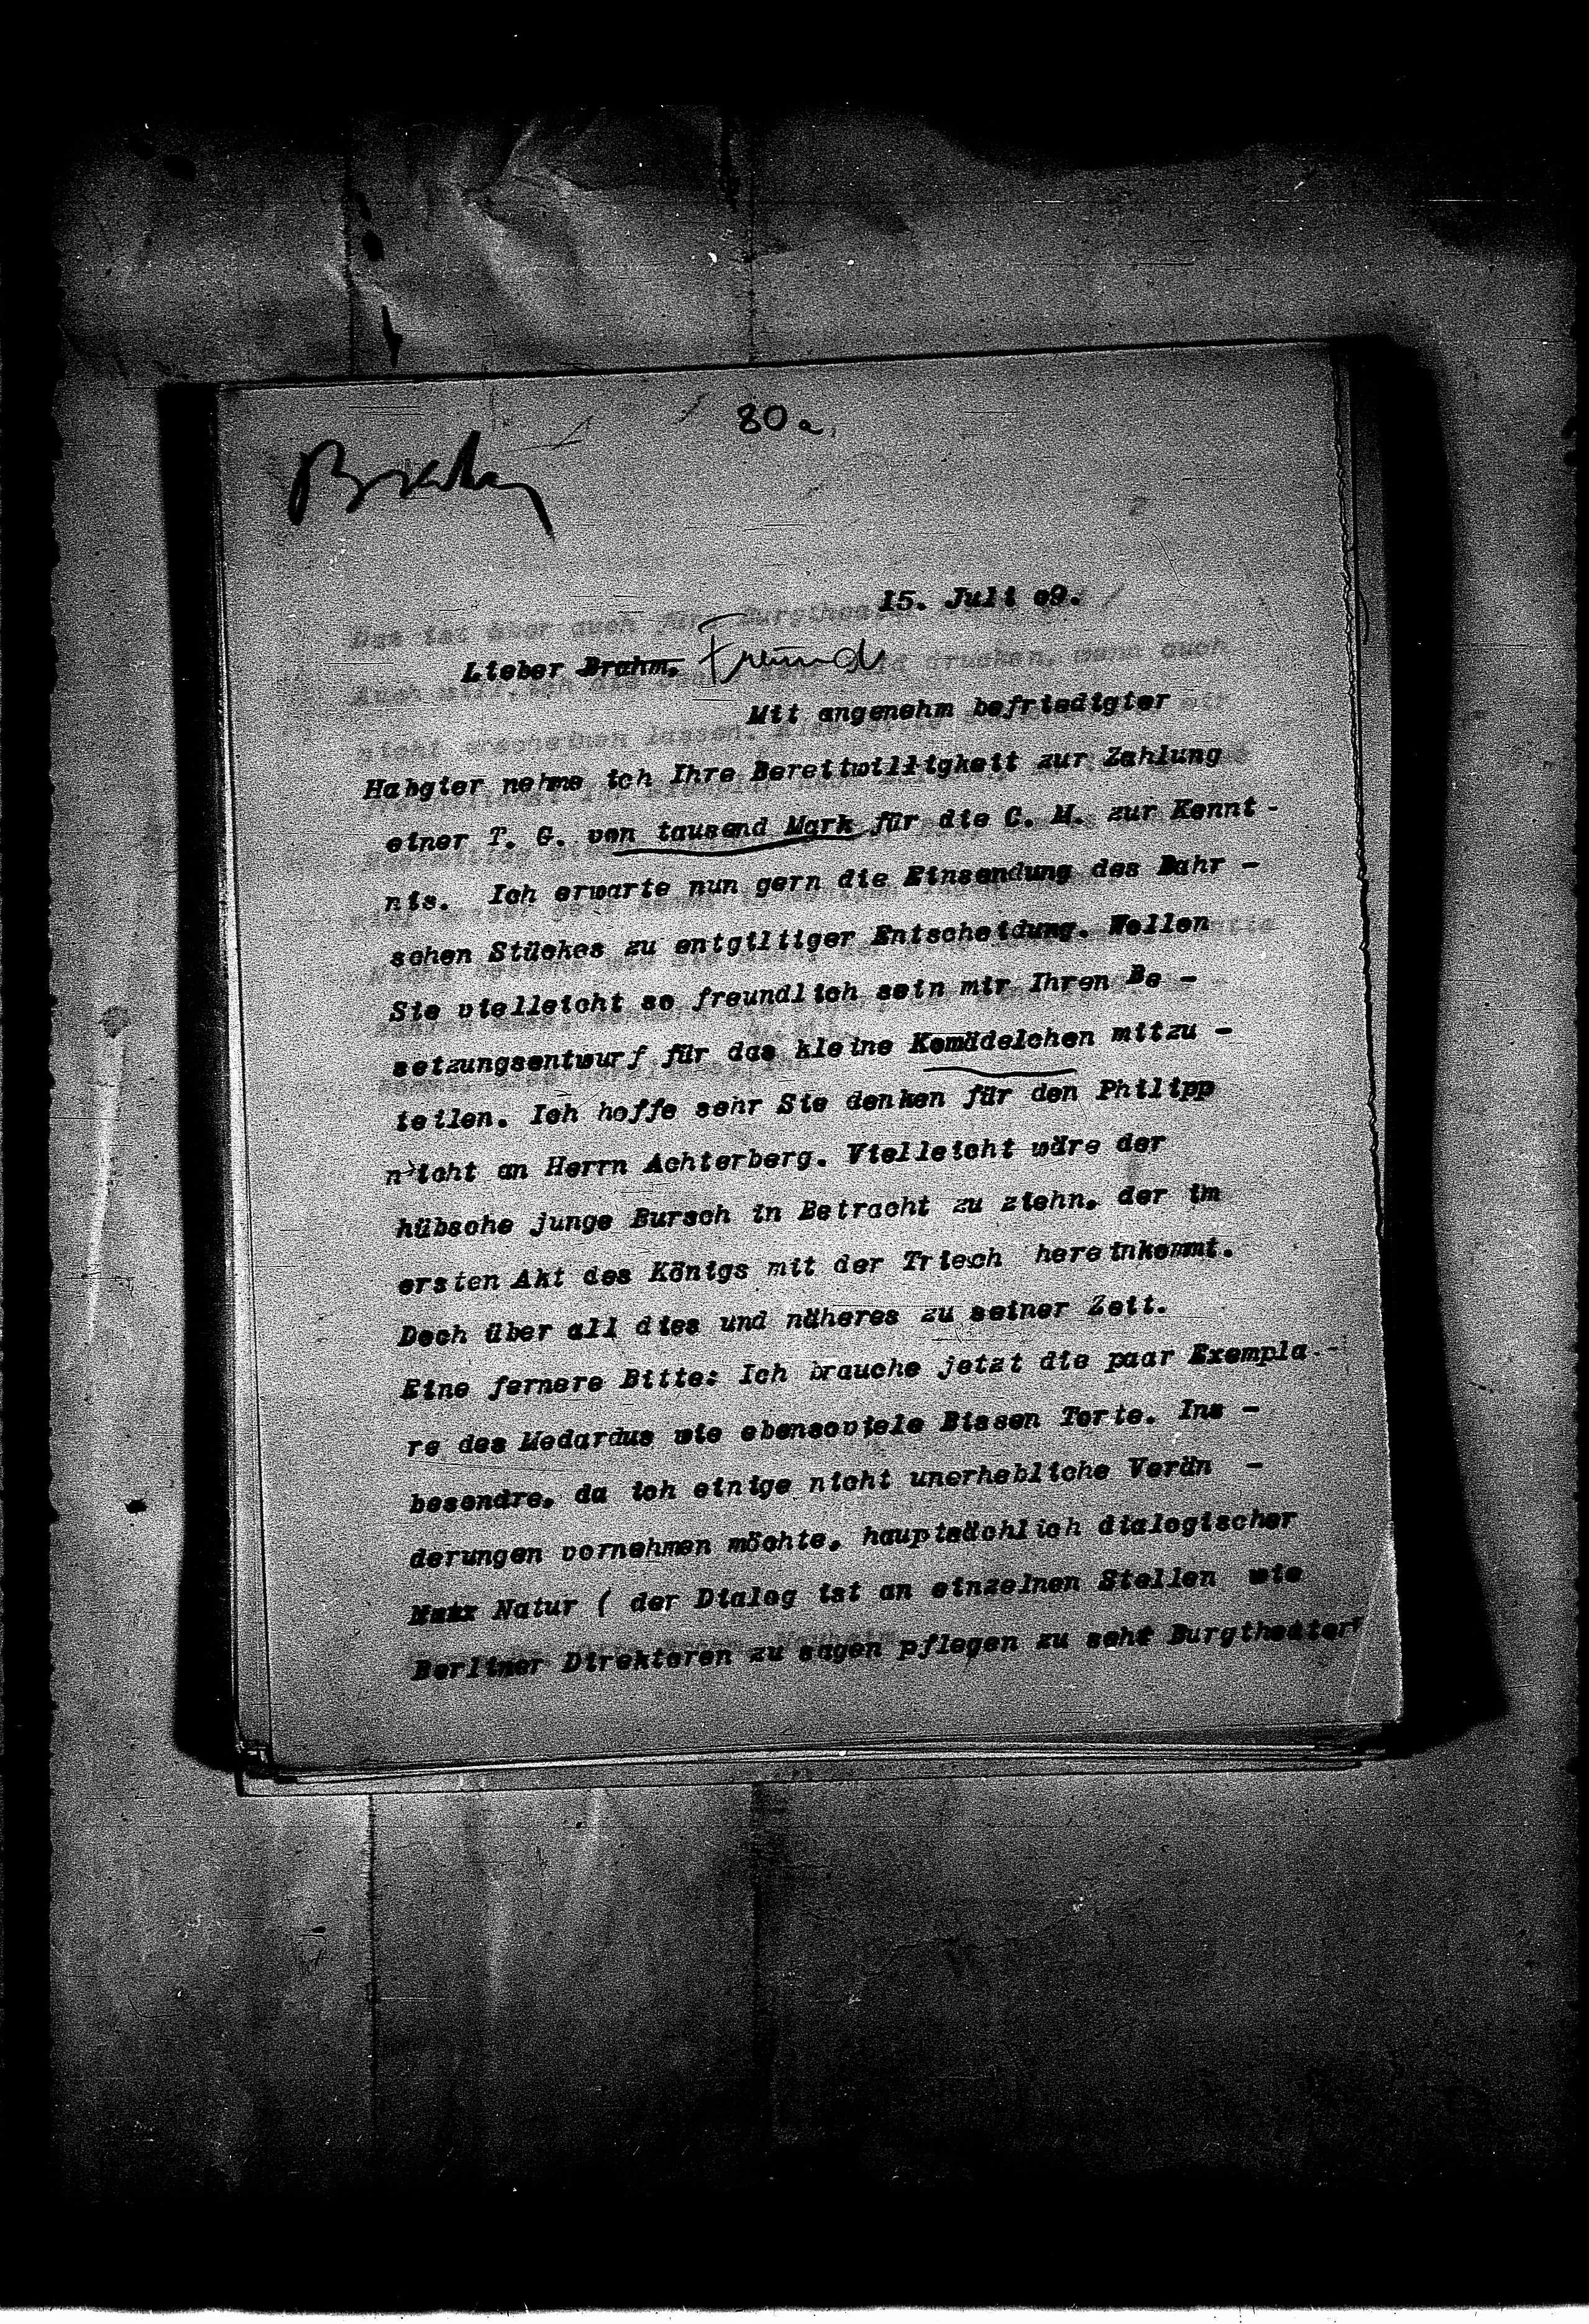 80a
Brahm
15. Juli 09.
Lieber Brahm. Freund
Mit angenehm befriedigter
Habgier nehme ich Ihre Bereitwilligkeit zur Zahlung
einer T. G. von tausend Mark für die C. M. zur Kennt-
nis. Ich erwarte nun gern die Einsendung des Bahr-
schen Stückes zu entgiltiger Entscheidung. Wollen
Sie vielleicht so freundlich sein mir Ihren Be-
setzungsentwurf für das kleine Komödelchen mitzu-
teilen. Ich hoffe sehr Sie denken für den Philipp
nicht an Herrn Achterberg. Vielleicht wäre der
hübsche junge Bursch in Betracht zu ziehn, der im
ersten Akt des Königs mit der Triesch hereinkommt.
Doch über all dies und näheres zu seiner Zeit.
Eine fernere Bitte: Ich brauche jetzt die paar Exempla-
re des Medardus wie ebensoviele Bissen Torte. Ins-
besondre, da ich einige nicht unerhebliche Verän-
derungen vornehmen möchte, hauptsächlich dialogischer
Natur ( der Dialog ist an einzelnen Stellen wie
Berliner Direktoren zu sagen pflegen zu sehr Burgtheater